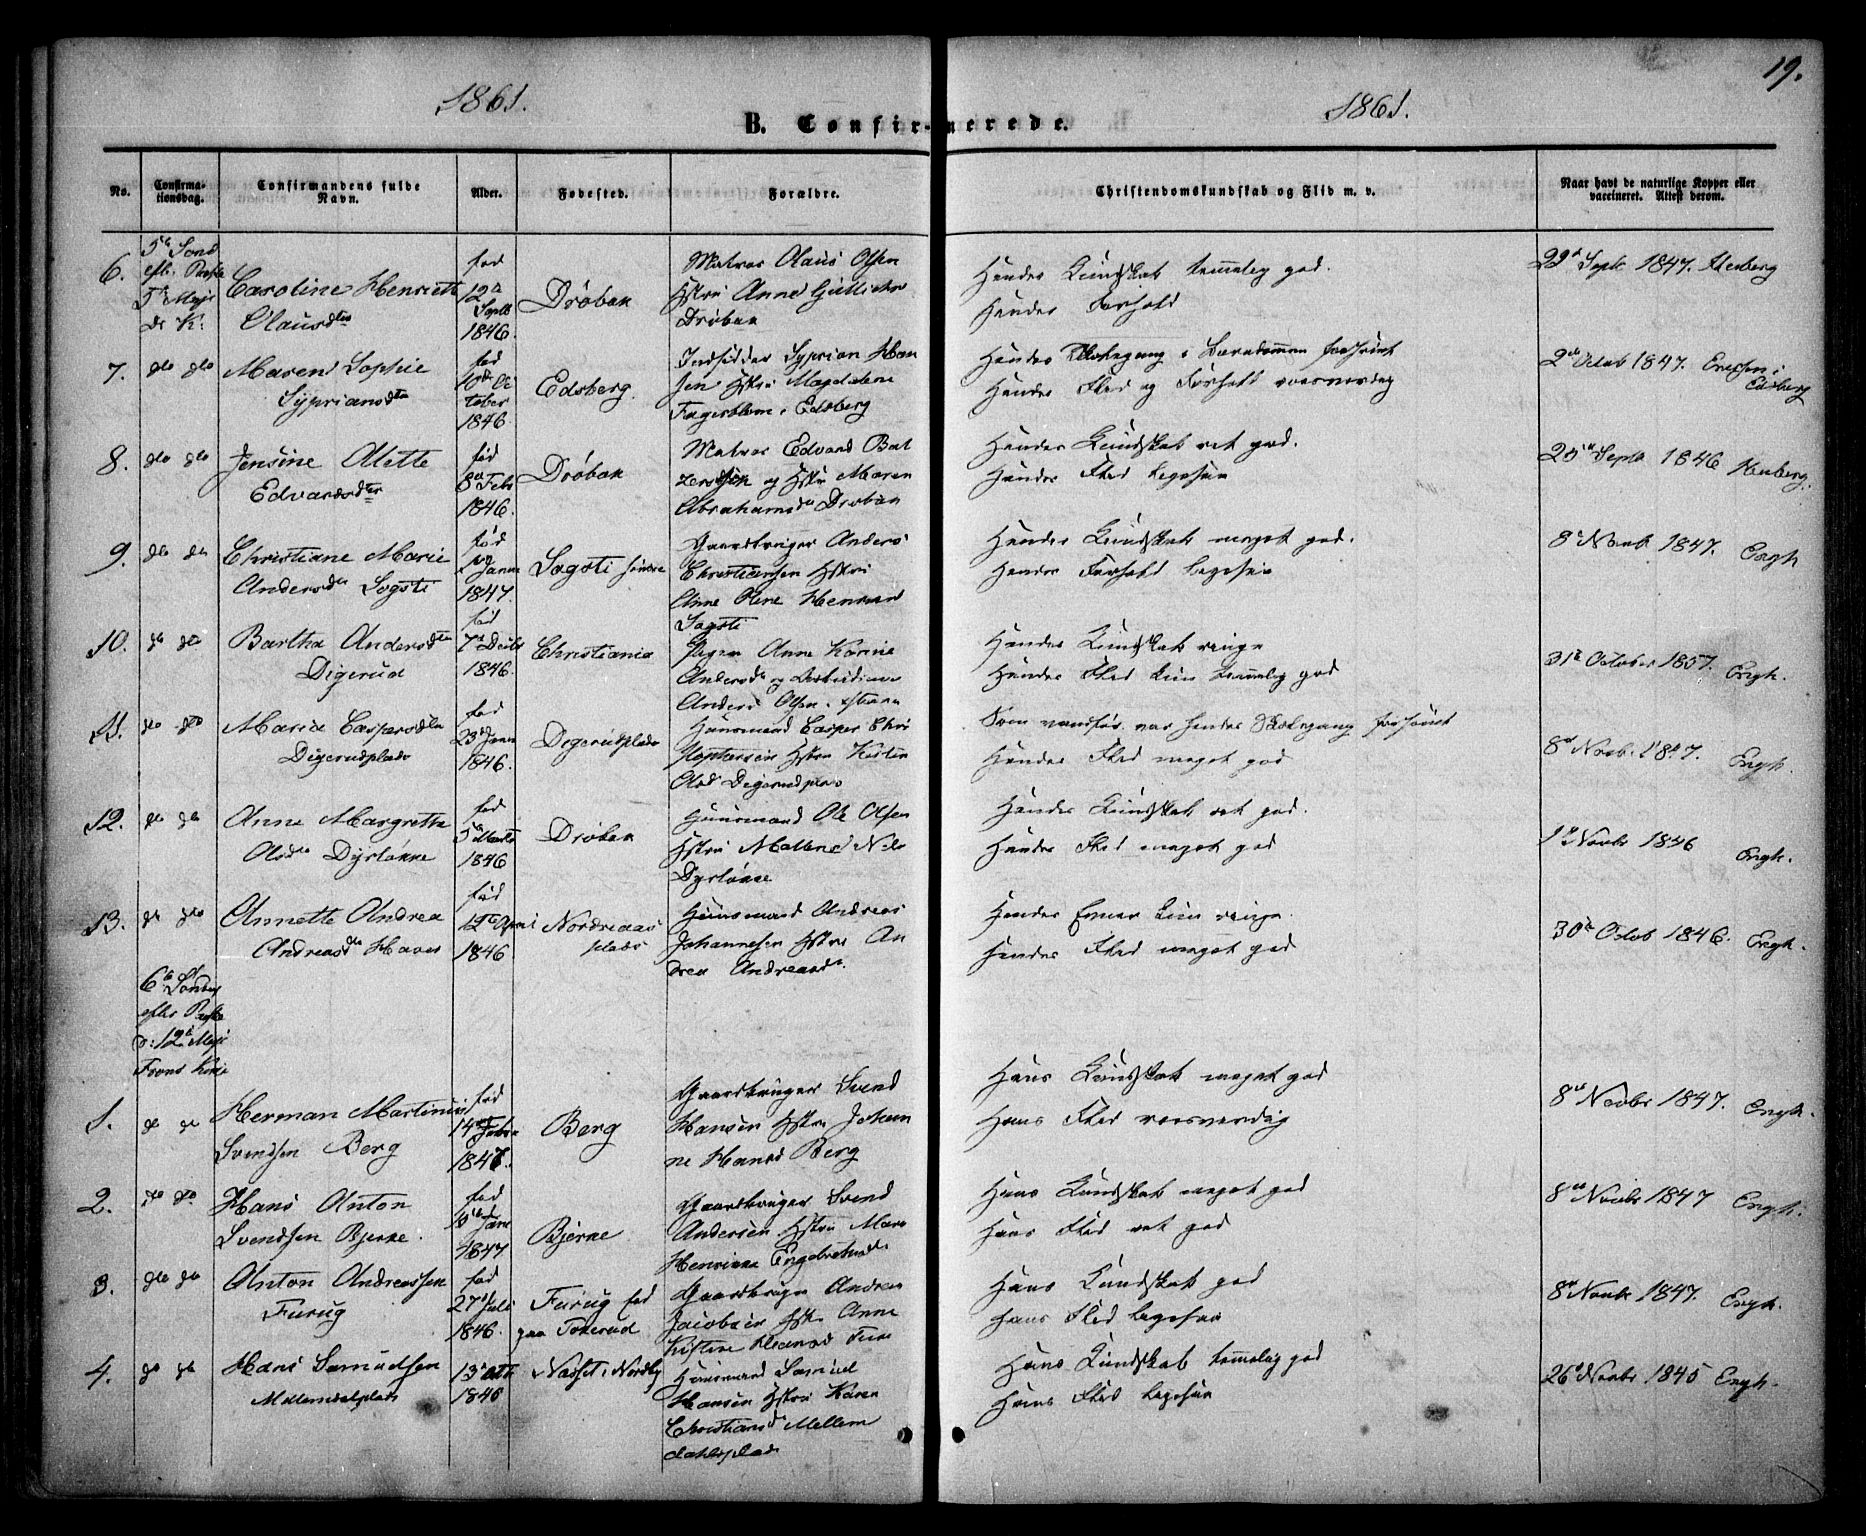 19.
1861.
1861.
B. Confirmerede.
No.
Confirma-
tionsdag.
Confirmandens fulde
Navn.
Alder.
Fødested.
Forældre.
Christendomskundskab og Flid m. v.
Naar havt de naturlige Kopper eller
vaccineret. Attest derom.
6.
Caroline Henriette
Clausdtr
fød
12te
Septb
1846.
Drøbak
Matros Olaus Olsen
Hstru Anne
Drøbak
Hendes Kundskab temmelig god.
Hendes Forhold
Septb 1847.
7.
do do
Maren Sophie
Sypriansdtr
fød
10de Oc
tober
1846
Edsberg.
Syprian Han
sen Hstru Magdalene
i Edsberg
Hendes Skolegang i Barndommen forsømt
Hendes Flid og Forhold roesværdig
2den Octob 1847. Ericksen i
Edsberg
8.
do do
Jensine Olette
Edvardsdtr
fød
8de Feb
1846.
Drøbak
Matros Edvard Bal
zersen og Hstru Maren
Abrahamsd Drøbak
Hendes Kundskab ret god.
Hendes Flid ligesaa
Septb 1846
9.
do do
Christiane Marie
Andersdtr Sogsti
fød
Janua
1847.
Sogsti søndre
Gaardbruger Anders
Christiansen Hstru
Anne Olene
Sogsti
Hendes Kundskab meget god.
Hendes Forhold ligesaa
8de Novb 1847. Engh
10.
do do
Bertha Andersdtr
Digerud
fød
7de Decbr
1846.
Christiania
Pigen Anne Karine
Andersd og
Anders Olsen
Hendes Kundskab ringe
Hendes Flid kun temmelig god
31te October 1857. Engh.
11.
do do
Maria Caspersdtr
Digerudplads
fød
23de Janu
1846.
Digerudplads
Huusmand Casper Chri
stophersen Hstru Kirsten
Olsd Digerudplads
Som var hendes Skolegang forsømt
Hendes Flid meget god
8de Novb. 1847. Engh.
12.
do do
Anne Margrethe
Olsdtr Dyrløkke
fød
5te Marts
1846
Drøbak
Huusmand Ole Olsen
Hstru Mallene Nils
Dyrløkke
Hendes Kundskab ret god.
Hendes Flid meget god
1ste Novbr 1846 Engh.
13.
do do
Annette Andrea
Andreasdtr Haver
fød
12te April
1846
Nordreaas
plads
Huusmand Andreas
Johannesen Hstru An
drea Andreasd.
Hendes Evner kun ringe.
Hendes Flid meget god
30te Octob 1846. Engh.
6te Søndag
efter Paaske
d: 12te Maji
Frons Kirke
1.
do do
Herman Martinius
Svendsen Berg
fød
14de Febru
1847.
Berg
Gaardbruger Svend
Hansen Hstru Johan
ne Hansd Berg
Hans Kundskab meget god
Hans Flid roesværdig
8de Novbr 1847. Engh.
2.
do do
Hans Anton
Svendsen Bjerke.
fød
Janr
1847
Bjerke
Gaardbruger Svend
Andersen Hstru Maren
Henrikke Engebretsd
Hans Kundskab meget god
Hans Flid ret god
8de Novbr 1847 Engh.
3.
do do
Anton Andreassen
Furug
fød
27de Juli
1846.
Furug fød
paa Tokerud
Gaardbruger Andreas
Jacobsen Hstr. Anne
Kistine
Hans Kundskab god
hans Flid ligesaa
8de Novbr 1847. Engh.
4.
do do
Hans Samuelsen
Mellemdalplads
13de
1846
Næsset i Nordby
Huusmand Samuel
Hansen Hstru Karen
Christiansd Mellem
dahlsplads
Hans Kundskab temmelig god
Hans Flid ligesaa
26de Novbr 1846 Engh.